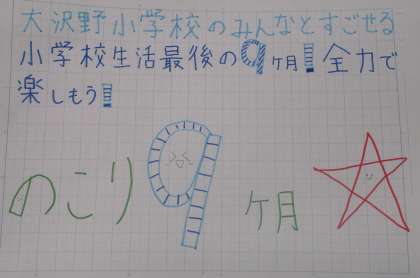 大沢野小学校のみんなとすごせる
小学校生活最後の9ヶ月！全力で
楽しもう！
のこり9ヶ月